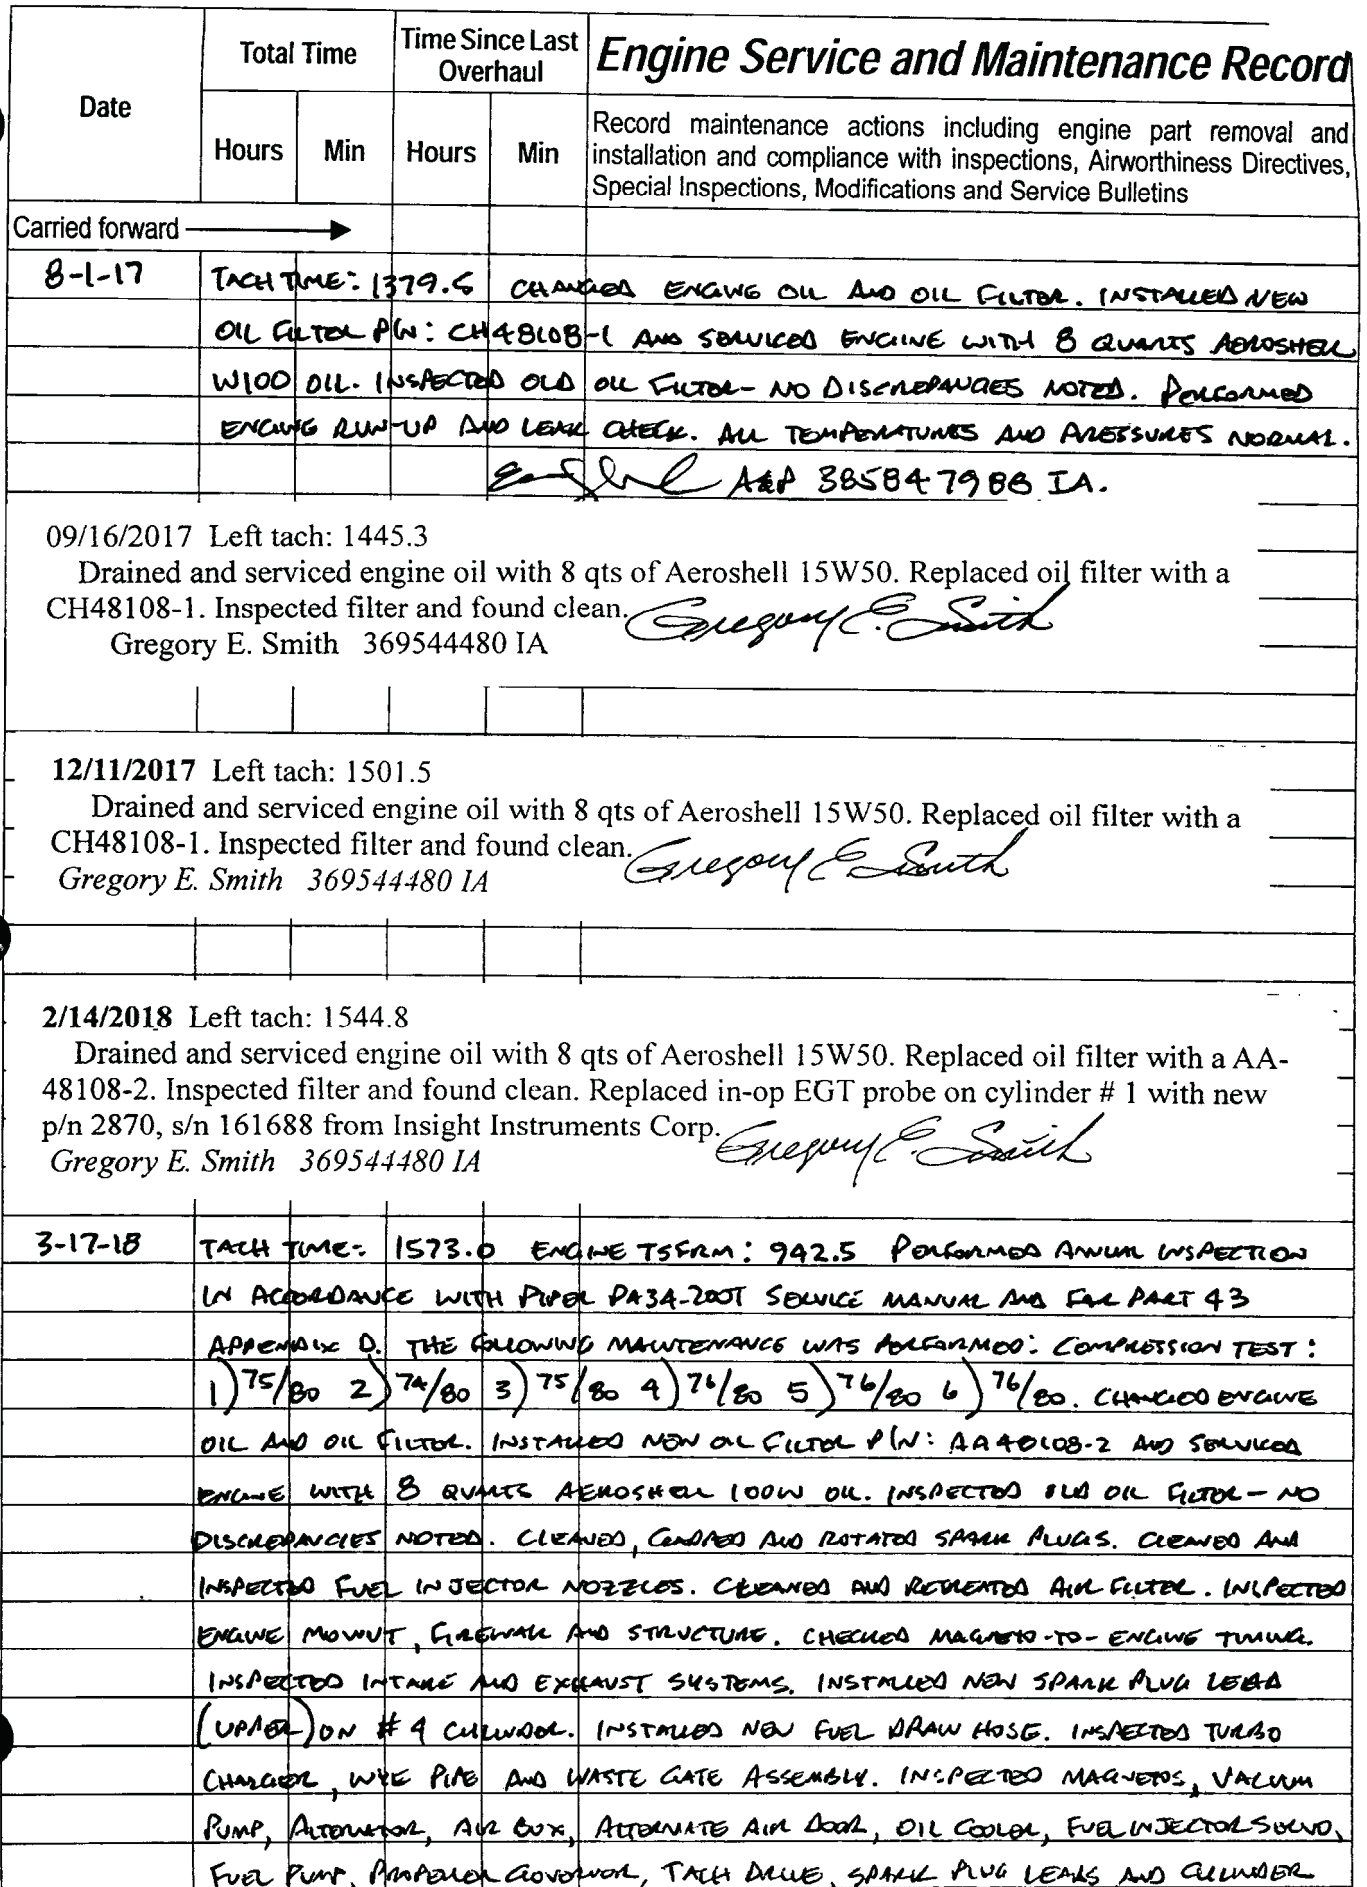 Date
Total Time
Time Since Last
Overhaul
Engine Service and Maintenance Record
Hours
Min
Hours
Min
Record maintenance actions including engine part removal and
installation and compliance with inspections, Airworthiness Directives,
Special Inspections, Modifications and Service Bulletins
Carried forward
8-1-17 TACH TIME: 1379.5 CHANGED ENGINE OIL AND OIL FILTER. INSTALLED NEW
OIL FILTER P/N: CH48108-1 AND SERVICED ENGINE WITH 8 QUARTS AEROSHELL
W100 OIL. INSPECTED OLD OIL FILTER - NO DISCREPANCIES NOTED. PERFORMED
ENGINE RUN-UP AND LEAK CHECK. ALL TEMPERATURES AND PRESSURES NORMAL.
A&P 385847988 IA.
09/16/2017 Left tach: 1445.3
Drained and serviced engine oil with 8 qts of Aeroshell 15W50. Replaced oil filter with a
CH48108-1. Inspected filter and found clean. Gregory E. Smith
Gregory E. Smith 369544480 IA
12/11/2017 Left tach: 1501.5
Drained and serviced engine oil with 8 qts of Aeroshell 15W50. Replaced oil filter with a
CH48108-1. Inspected filter and found clean. Gregory E. Smith
Gregory E. Smith 369544480 IA
2/14/2018 Left tach: 1544.8
Drained and serviced engine oil with 8 qts of Aeroshell 15W50. Replaced oil filter with a AA-
48108-2. Inspected filter and found clean. Replaced in-op EGT probe on cylinder # 1 with new
p/n 2870, s/n 161688 from Insight Instruments Corp. Gregory E. Smith
Gregory E. Smith 369544480 IA
3-17-18 TACH TIME: 1573.0 ENGINE TSFRM: 942.5 PERFORMED ANNUAL INSPECTION
IN ACCORDANCE WITH PIPER PA34-200T SERVICE MANUAL AND FAR PART 43
APPENDIX D. THE FOLLOWING MAINTENANCE WAS PERFORMED: COMPRESSION TEST:
1) 75/80 2) 74/80 3) 75/80 4) 76/80 5) 76/80 6) 76/80. CHANGED ENGINE
OIL AND OIL FILTER. INSTALLED NEW OIL FILTER P/N: AA48108-2 AND SERVICED
ENGINE WITH 8 QUARTS AEROSHELL 100W OIL. INSPECTED OLD OIL FILTER - NO
DISCREPANCIES NOTED. CLEANED, GAPPED AND ROTATED SPARK PLUGS. CLEANED AND
INSPECTED FUEL INJECTOR NOZZLES. CLEANED AND RETREATED AIR FILTER. INSPECTED
ENGINE MOUNT, FIREWALL AND STRUCTURE. CHECKED MAGNETO-TO-ENGINE TIMING.
INSPECTED INTAKE AND EXHAUST SYSTEMS. INSTALLED NEW SPARK PLUG LEAD
(UPPER) ON # 4 CYLINDER. INSTALLED NEW FUEL DRAIN HOSE. INSPECTED TURBO
CHARGER, WYE PIPE AND WASTE GATE ASSEMBLY. INSPECTED MAGNETOS, VACUUM
PUMP, ALTERNATOR, AIR BOX, ALTERNATE AIR DOOR, OIL COOLER, FUEL INJECTOR SERVO,
FUEL PUMP, PROPELLER GOVERNOR, TACH DRIVE, SPARK PLUG LEADS AND CYLINDER